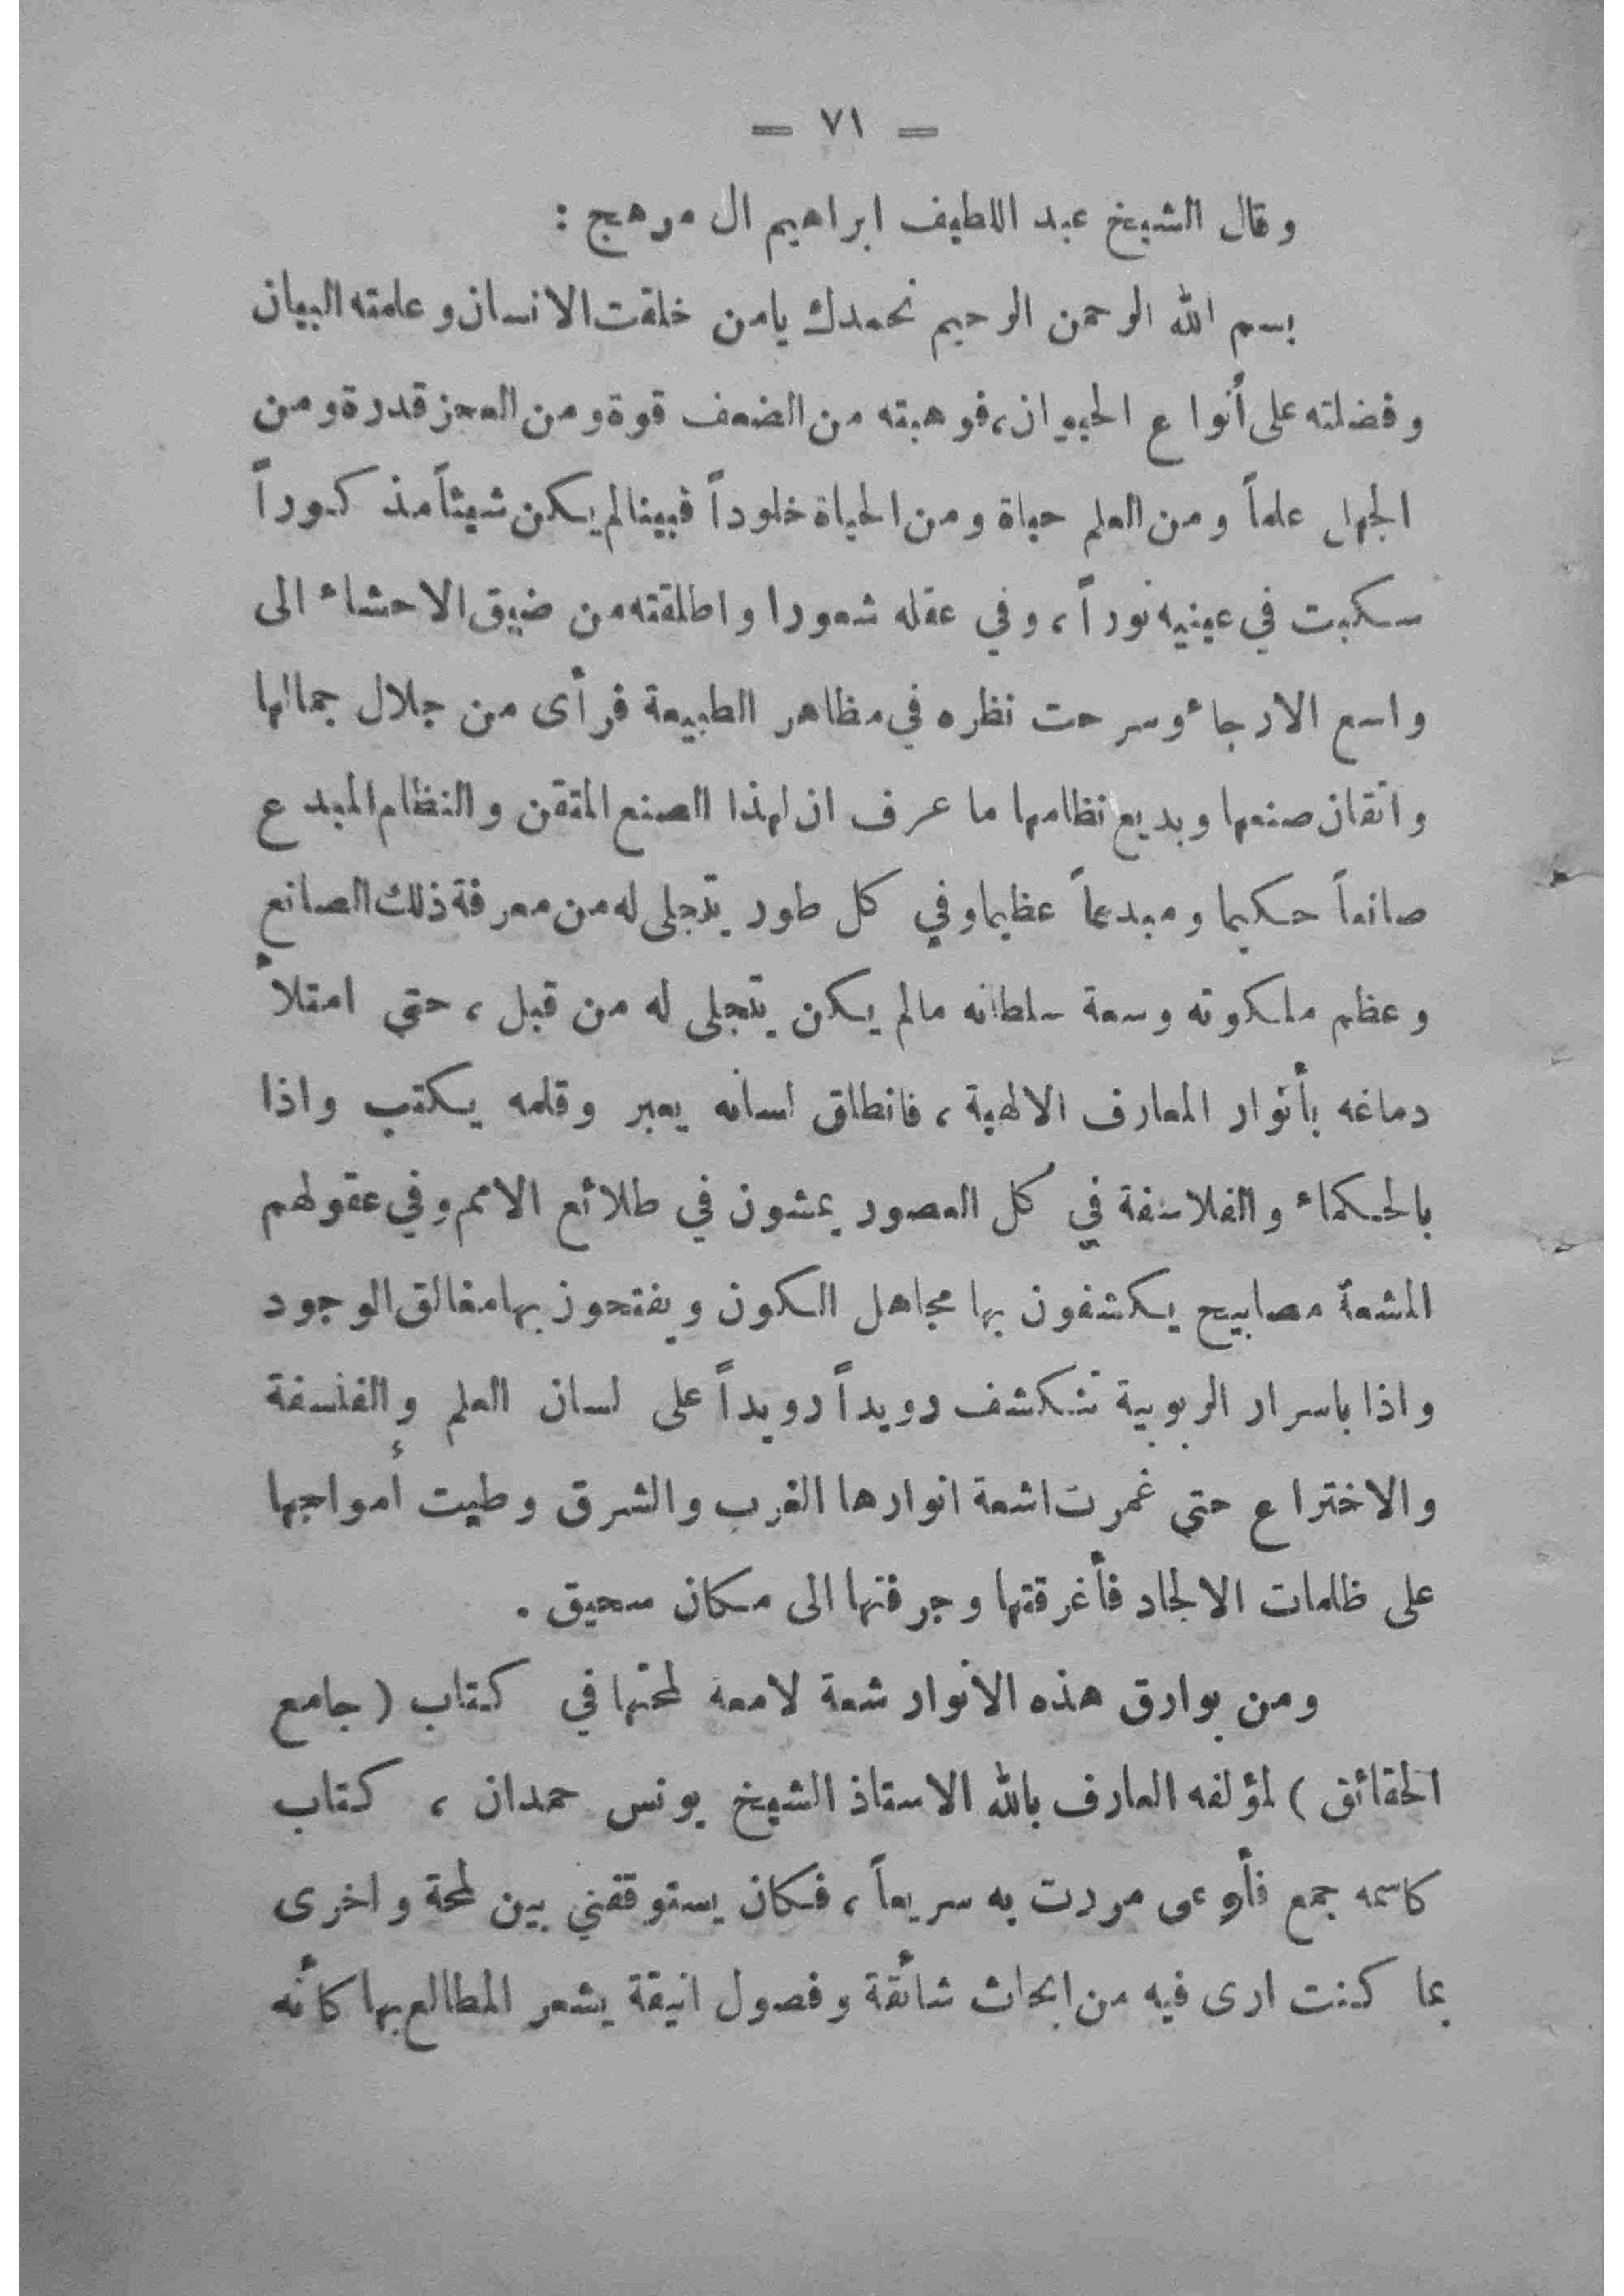 — ٧١ —
وقال الشيخ عبد اللطيف ابراهيم ال مرهج :
بسم الله الرحمن الرحيم نحمدك يامن خلقت الانسان وعلمته البيان
وفضلته على أنواع الحيوان، فوهبته من الضعف قوة ومن العجز قدرة ومن
الجهل علماً ومن العلم حياة ومن الحياة خلوداً فبينا لم يكن شيئاً مذكوراً
سكبت في عينيه نوراً ، وفي عقله شعورا واطلقته من ضيق الاحشاء الى
واسع الارجاء وسرحت نظره في مظاهر الطبيعة فرأى من جلال جمالها
واتقان صنعها وبديع نظامها ما عرف ان لهذا الصنع المتقن والنظام المبدع
صانعاً حكيما ومبدعاً عظيما وفي كل طور يتجلى له من معرفة ذلك الصانع
وعظم ملكوته وسعة سلطانه مالم يكن يتجلى له من قبل ، حتى امتلأ
دماغه بأنوار المعارف الالهية ، فانطلق لسانه يعبر وقلمه يكتب واذا
بالحكماء والفلاسفة في كل العصور يمشون في طلائع الامم وفي عقولهم
المشعة مصابيح يكشفون بها مجاهل الكون ويفتحون بها مغالق الوجود
واذا باسرار الربوبية تتكشف رويداً رويداً على لسان العلم والفلسفة
والاختراع حتى غمرت اشعة انوارها الغرب والشرق وطيت أمواجها
على ظلمات الالحاد فأغرقتها وجرفتها الى مكان سحيق .
ومن بوارق هذه الانوار شعة لامعة لمحتها في كتاب ( جامع
الحقائق ) لمؤلفه العارف بالله الاستاذ الشيخ يونس حمدان ، كتاب
كاسمه جمع فأوعى مررت به سريعاً ، فكان يستوقفني بين لمحة واخرى
بما كنت ارى فيه من ابحاث شائقة وفصول انيقة يشعر المطالع بها كأنه